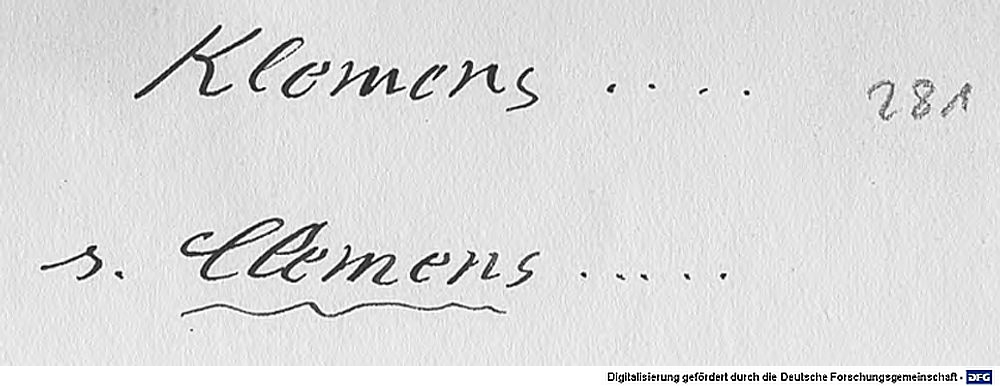 Klemens .... 281
s. Clemens .....
Digitalisierung gefördert durch die Deutsche Forschungsgemeinschaft - DFG